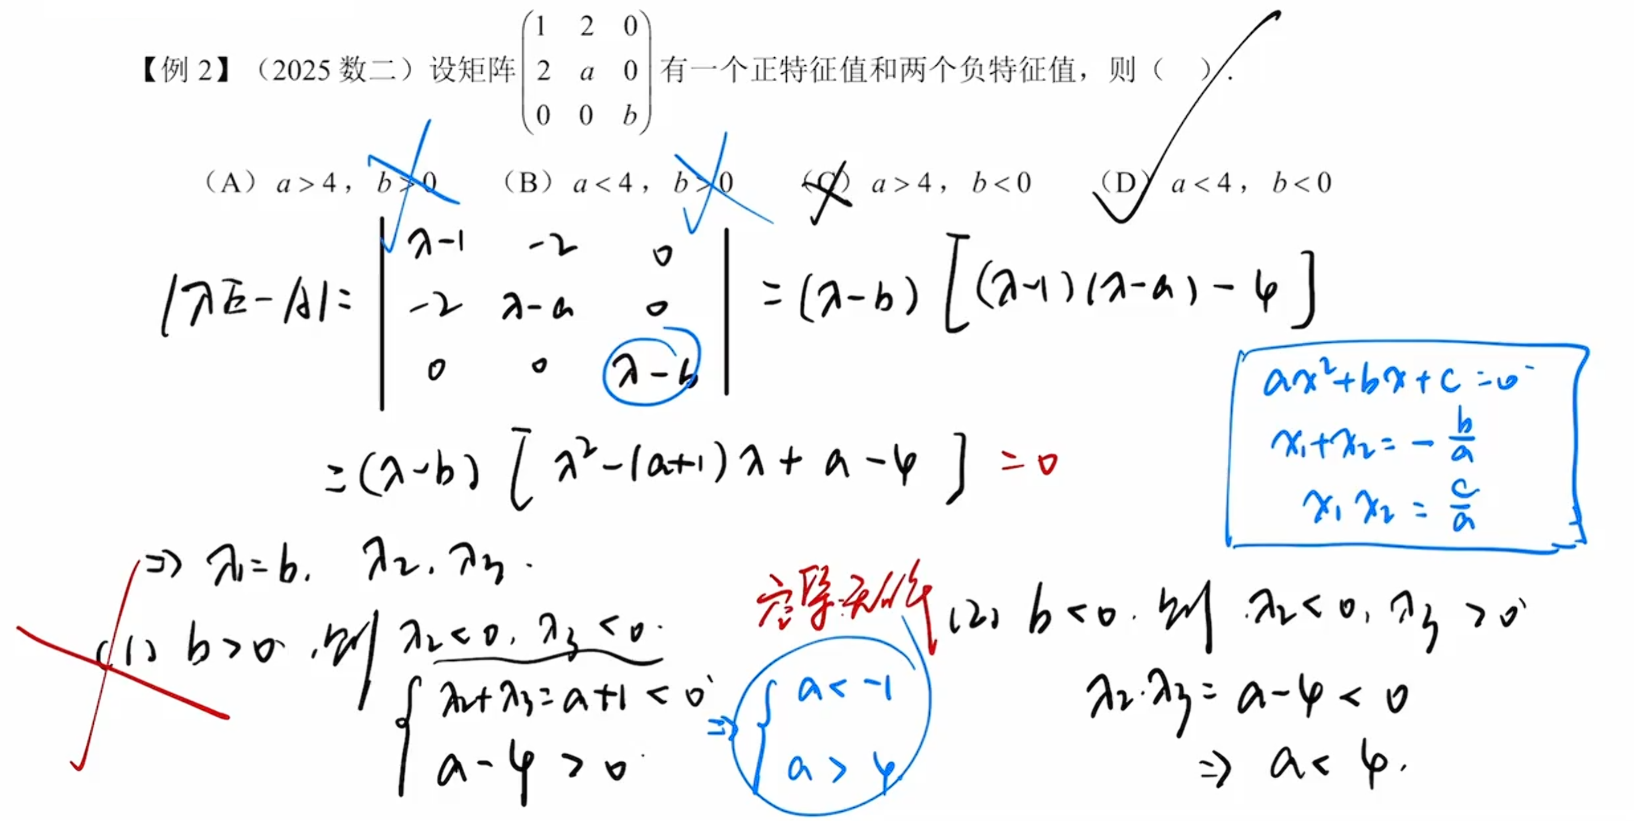 【例2】（2025 数二）设矩阵 (1 2 0; 2 a 0; 0 0 b) 有一个正特征值和两个负特征值，则（ ）.
（A）a > 4，b > 0 （B）a < 4，b > 0 （C）a > 4，b < 0 （D）a < 4，b < 0
|λE-A| = | λ-1 -2 0; -2 λ-a 0; 0 0 λ-b | = (λ-b) [(λ-1)(λ-a) - 4]
= (λ-b) [λ²-(a+1)λ + a-4] = 0
ax²+bx+c=0
x₁+x₂ = -b/a
x₁x₂ = c/a
⇒ λ₁=b, λ₂, λ₃.
(1) b>0, 则 λ₂<0, λ₃<0.
{ λ₂+λ₃=a+1<0
a-4>0
⇒ { a<-1
a>4
(2) b<0, 则 λ₂<0, λ₃>0
λ₂·λ₃ = a-4<0
⇒ a<4.